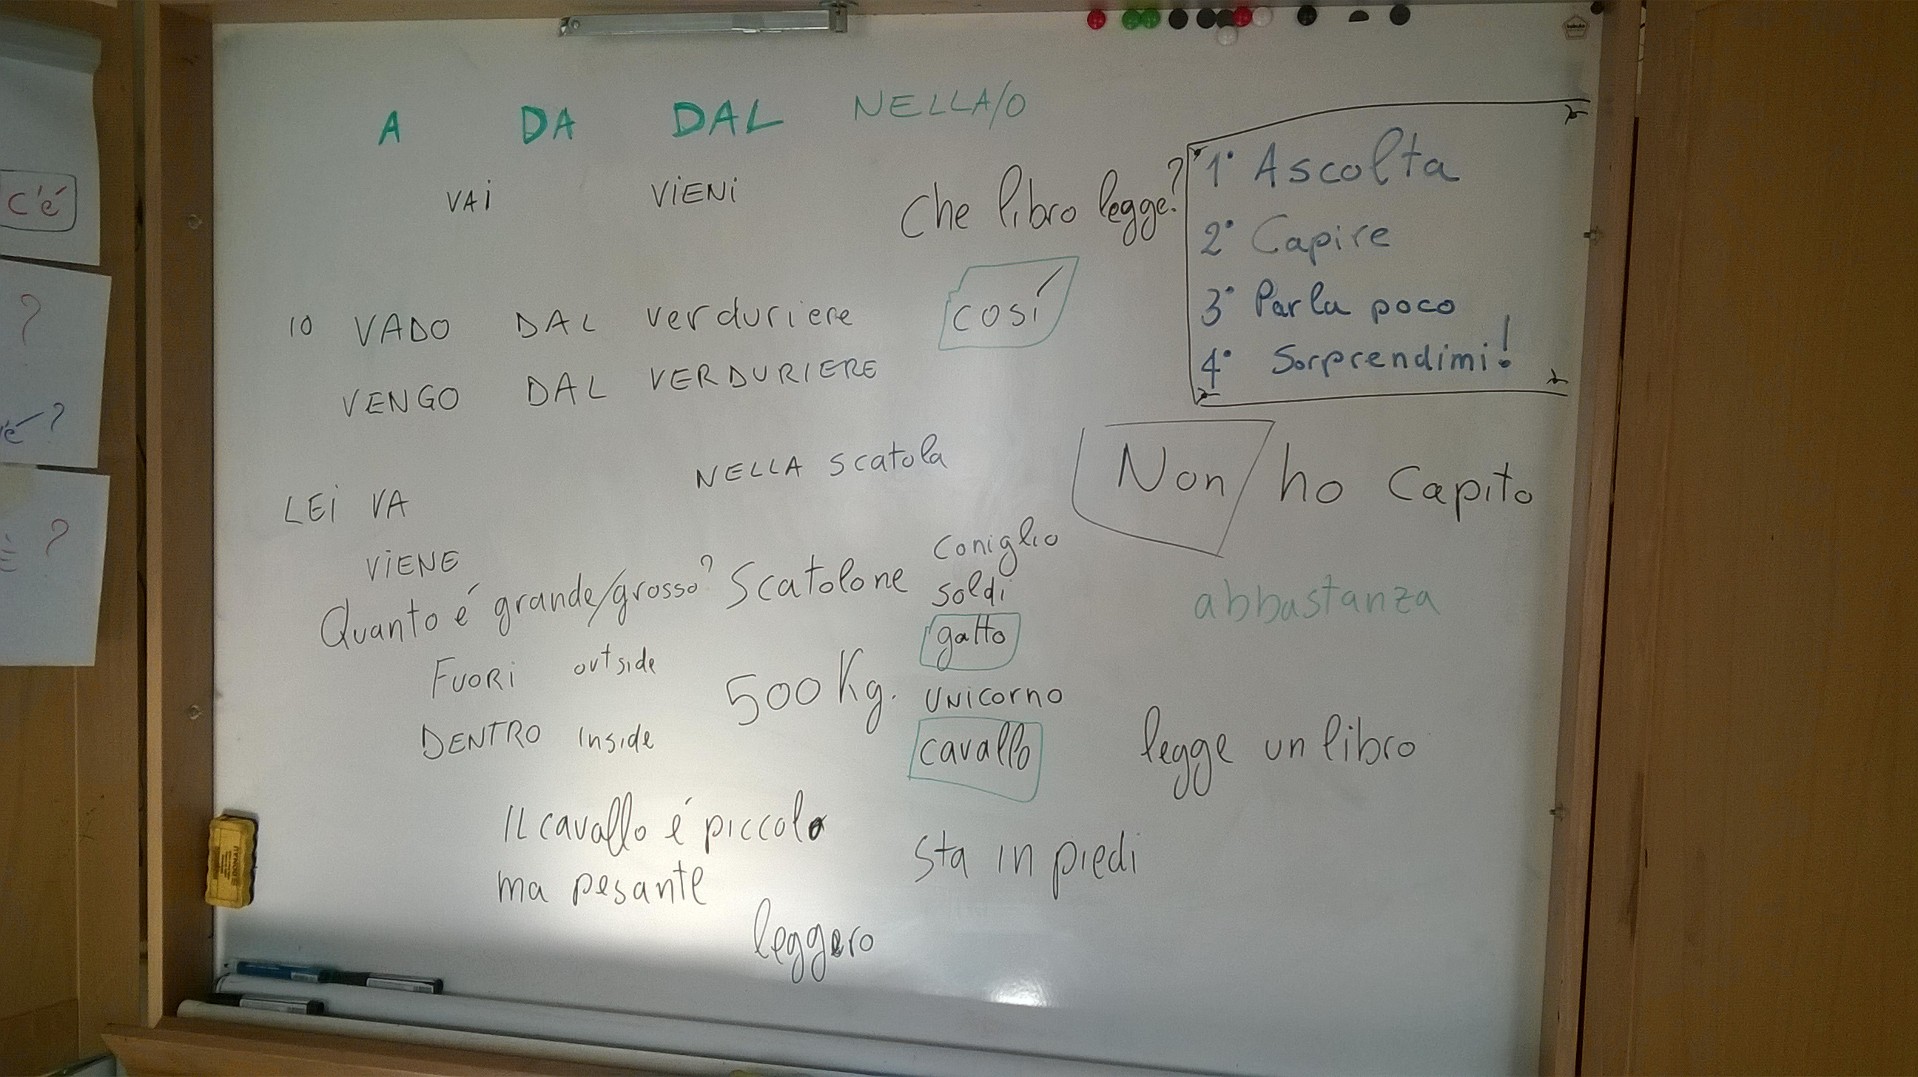 A DA DAL NELLA/O
VAI VIENI
Che libro legge?
1° Ascolta
2° Capire
3° Parla poco
4° Sorprendimi!
IO VADO DAL verduriere
cosí
VENGO DAL VERDURIERE
NELLA scatola
Non ho Capito
LEI VA
VIENE
Quanto é grande/grosso? Scatolone
Coniglio
soldi
gatto
unicorno
cavallo
abbastanza
FUORI outside
500 Kg.
DENTRO inside
legge un libro
IL cavallo é piccolo
ma pesante
leggero
sta in piedi
c'é
?
é?
?